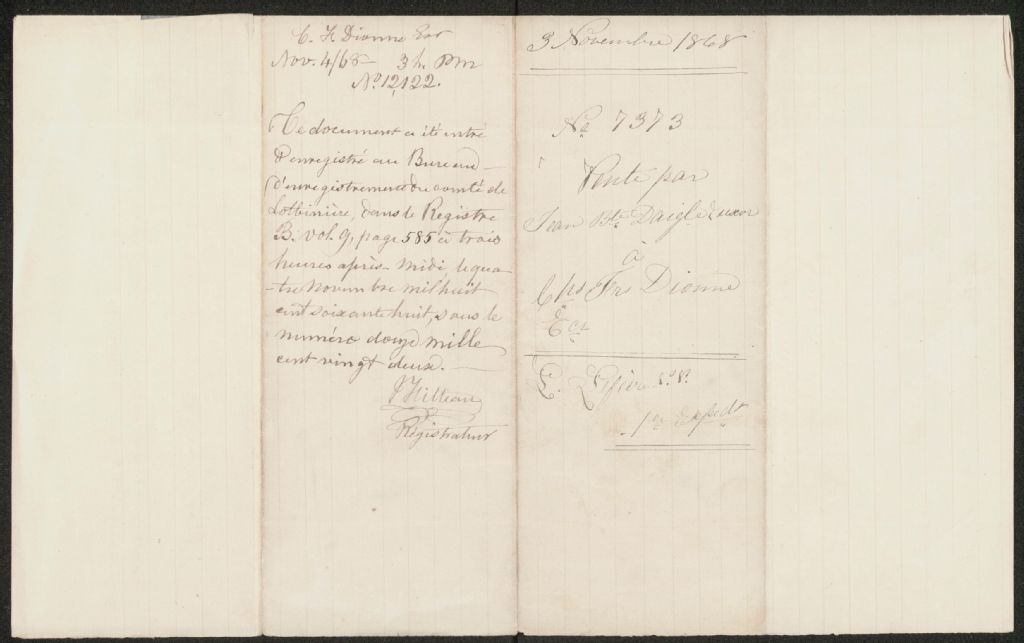 C. F. Dionne Esr
Nov. 4/68 — 3 h. PM
No. 12,122.
Ce document a été entré
& enregistré au Bureau
d'enregistrement du comté de
Lotbinière, dans le Registre
B. vol. 9, page 585 à trois
heures après-midi, le qua-
-tre novembre mil huit
cent soixante huit, sous le
numéro douze mille
cent vingt deux. —
Filteau
Régistrateur
3 Novembre 1868
No 7373
Vente par
Jean Bte Daigle & uxor
à
Chs Frs Dionne
Ecr
L. Lefivre N.P.
1er expedt